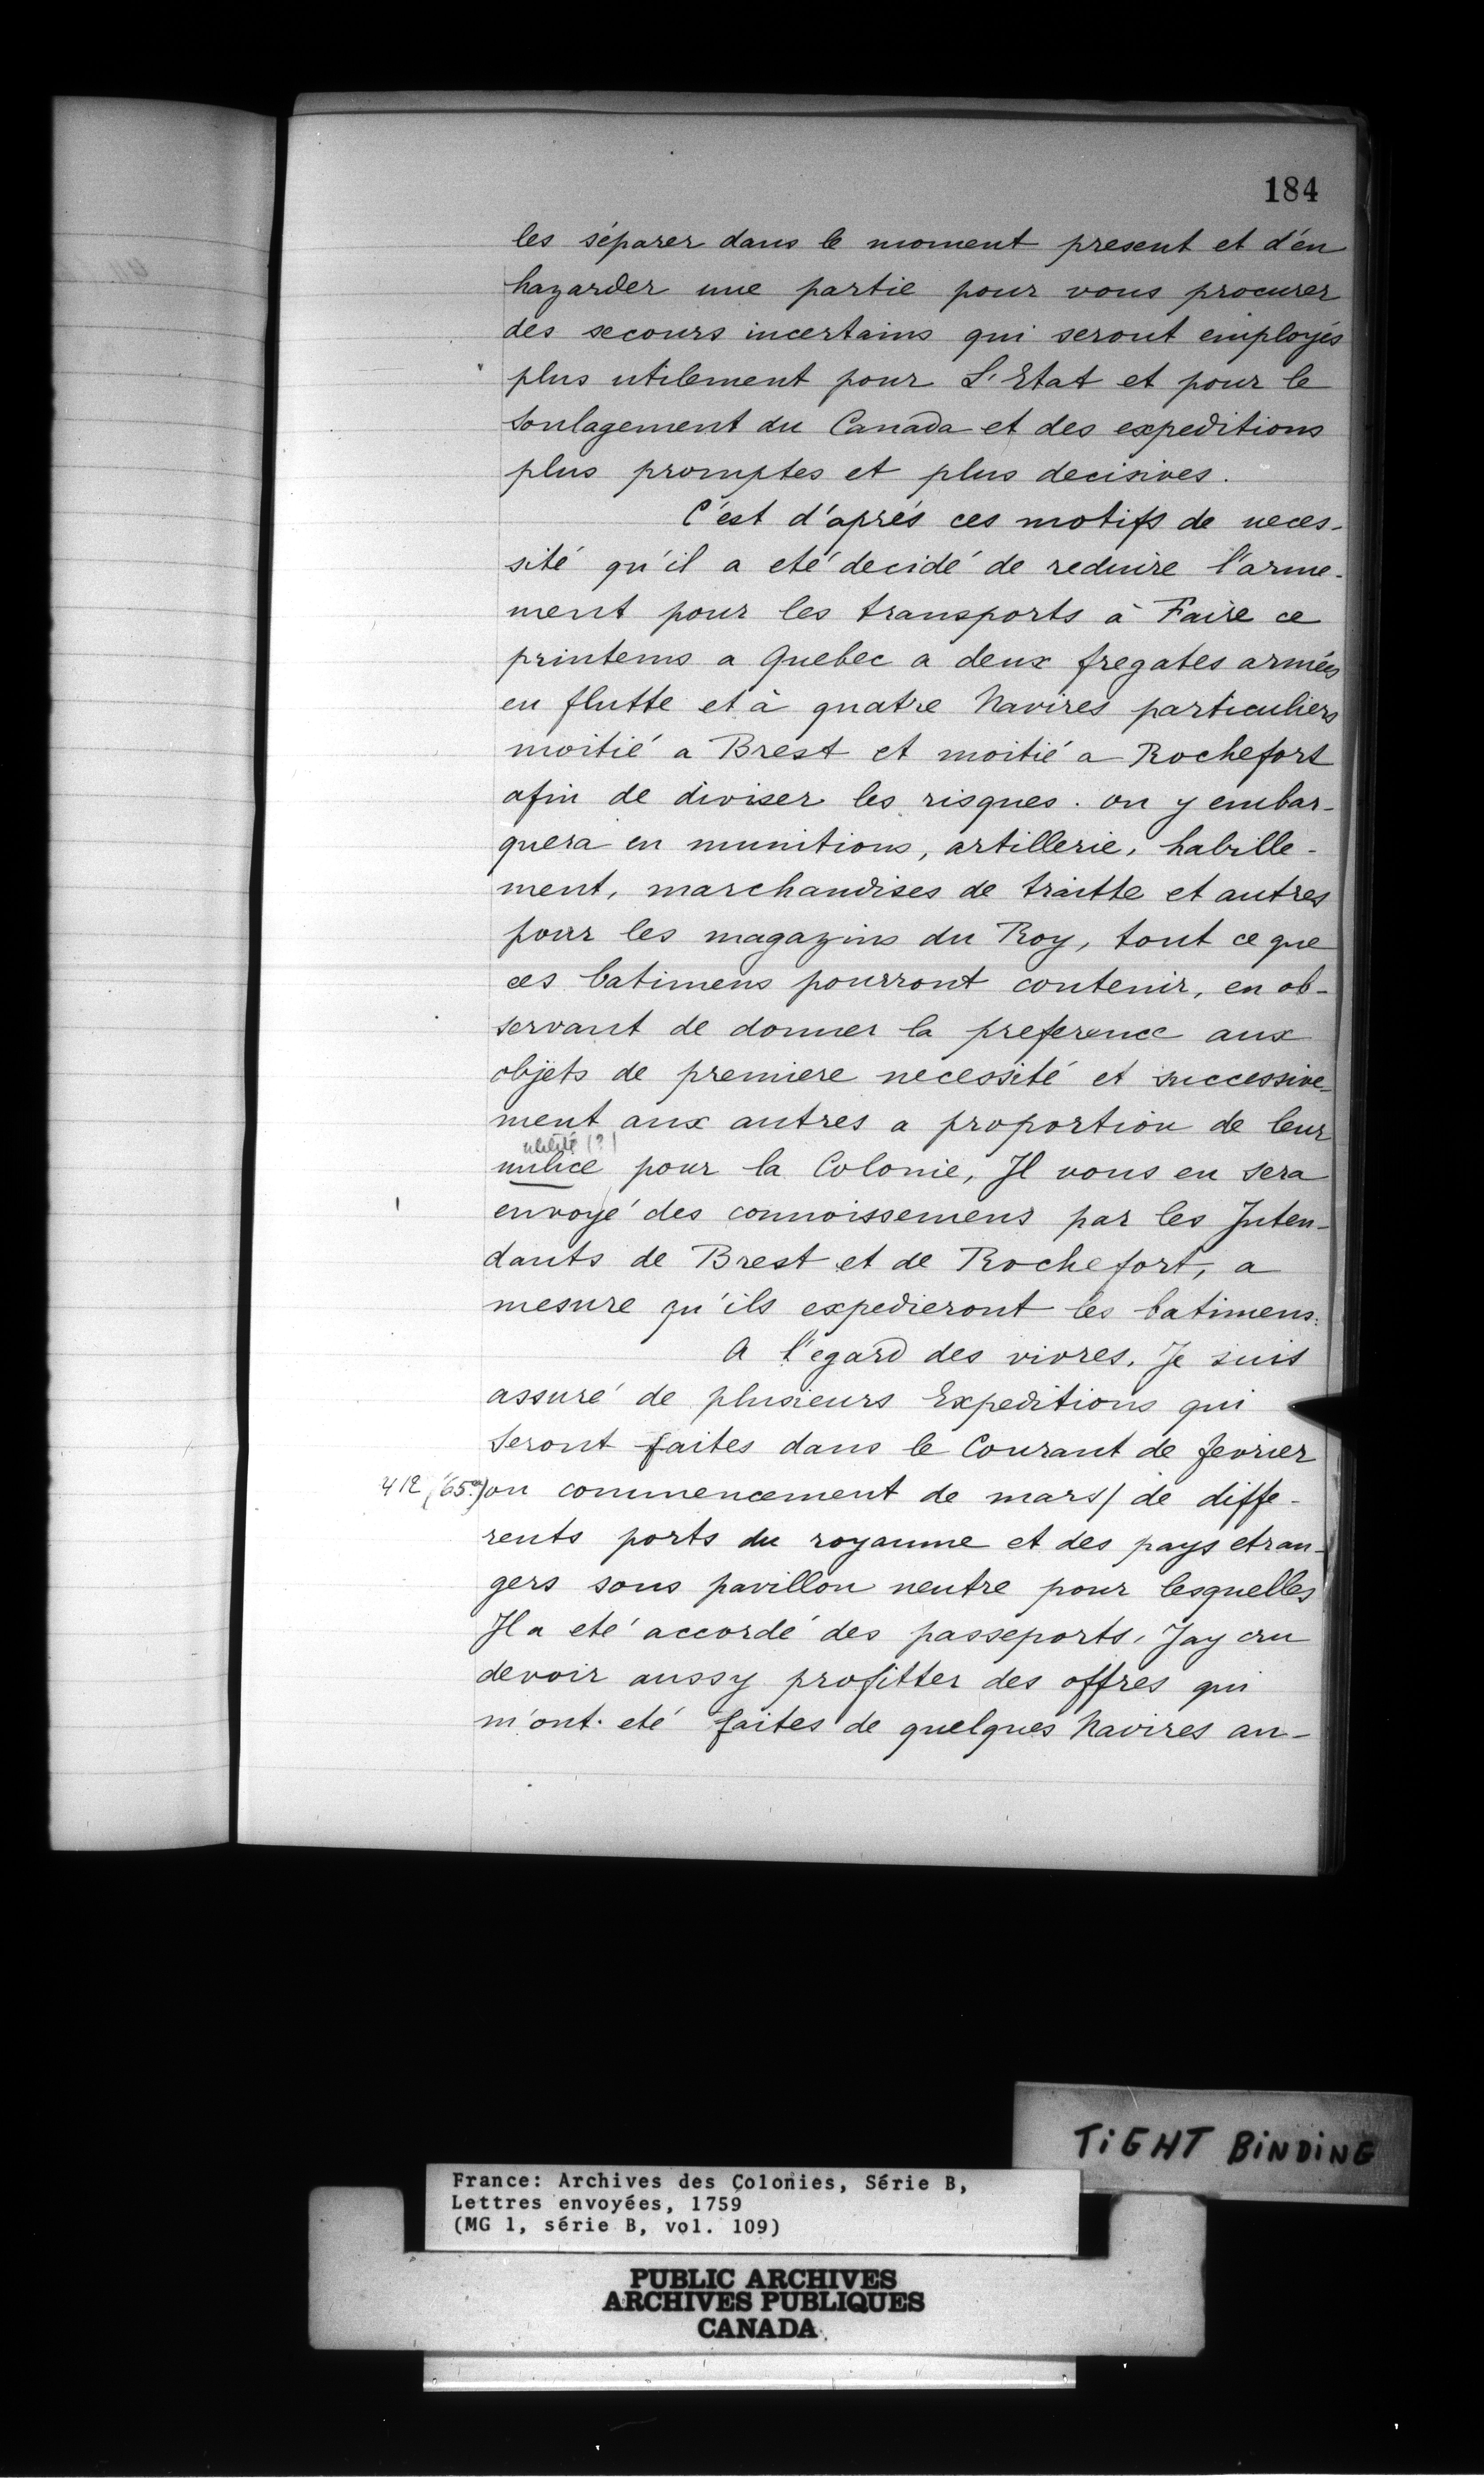 184
les séparer dans le moment present et d'en
hazarder une partie pour vous procurer
des secours incertains qui seront employés
plus utilement pour L'Etat et pour le
soulagement du Canada et des expeditions
plus promptes et plus decisives.
C'est d'aprés ces motifs de neces-
sité qu'il a eté decidé de reduire l'arme-
ment pour les transports à Faire ce
printems a Quebec a deux fregates armées
en flutte et à quatre Navires particuliers
moitié a Brest et moitié a Rochefort
afin de diviser les risques. on y embar-
quera en munitions, artillerie, habille-
ment, marchandises de traitte et autres
pour les magazins du Roy, tout ce que
ces batimens pourront contenir, en ob-
servant de donner la preference aux
objets de premiere necessité et successive-
ment aux autres a proportion de leur
utilité (?)
milice pour la Colonie, Il vous en sera
envoyé des connoissemens par les Inten-
dants de Brest et de Rochefort, a
mesure qu'ils expedieront les batimens.
A l'egard des vivres, Je suis
assuré de plusieurs Expeditions qui
seront faites dans le Courant de fevrier
412 (65.) ou commencement de mars/ de diffe-
rents ports du royaume et des pays etran-
gers sous pavillon neutre pour lesquelles
Il a eté accordé des passeports, Jay cru
devoir aussy profitter des offres qui
m'ont eté faites de quelques Navires an-
TIGHT BINDING
France: Archives des Colonies, Série B,
Lettres envoyées, 1759
(MG 1, série B, vol. 109)
PUBLIC ARCHIVES
ARCHIVES PUBLIQUES
CANADA